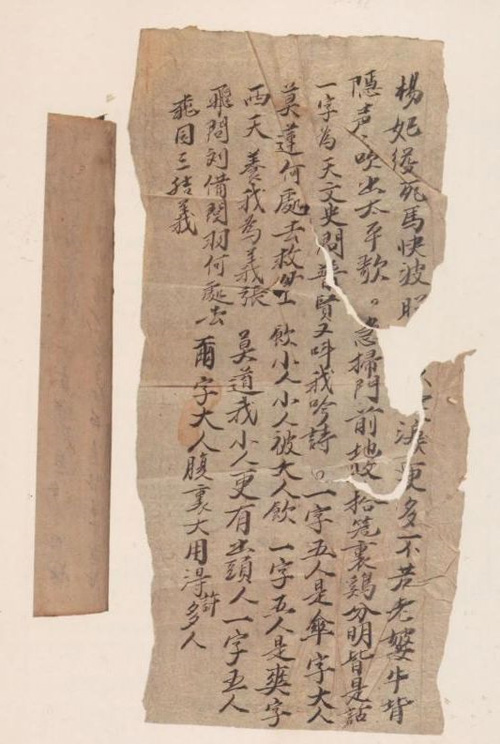 楊妃後死馬快波 淚更多不若老婆牛背
隱声〻吹出太平歌。急掃門前地收拾笼裏鷄分明皆是話
一字為天文史問普賢又叫我吟詩。一字五人是傘字大人
莫蓮何處去救 飲小人小人被大人飲 一字五人是爽字
西天養我為義張 莫道我小人更有出頭人一字五人
飛問刘備関羽何處去 爾字大人腹裏大用淂許多人
园三结義